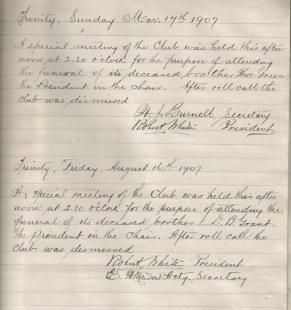 Trinity, Sunday Mar. 17th 1907
A special meeting of the Club was held this after
noon at 2.30 o'clock for the purpose of attending
the funeral of its deceased brother Thos.
the President in the chair. After roll call the
club was dismissed
Burnell Secretary
Robert White President
Trinity, Friday, August 16th 1907
A special meeting of the Club was held this after
noon at 2.30 o'clock for the purpose of attending the
funeral of its deceased brother D. B. Grant.
The President in the Chair. After roll call the
club was dismissed
Robert White President
Actg. Secretary